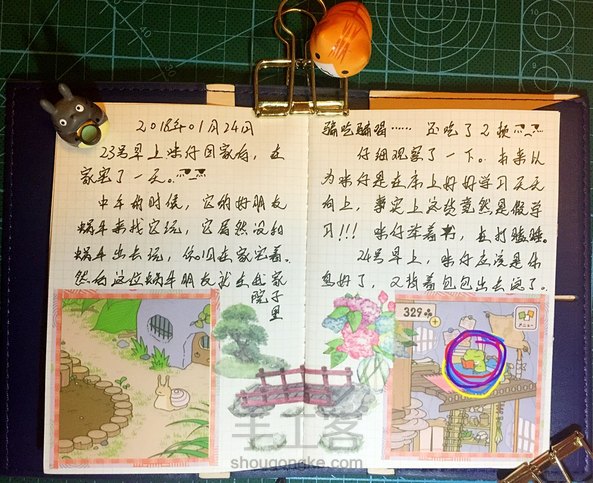 2018年01月24日
23号早上咪仔回家的，在
家宅了一天。
中午的时候，它的好朋友
蜗牛来找它玩，它居然没和
蜗牛出去玩，依旧在家宅着。
然后这位蜗牛朋友就在我家
院子
里
骗吃骗喝……还吃了2顿
仔细观察了一下。本来以
为咪仔是在床上好好学习天天
向上，事实上这货竟然是假学
习!!!咪仔举着书，在打瞌睡。
24号早上，咪仔应该是休
息好了，又背着包包出去浪了。
329
メニュー
手工客
shougongke.com